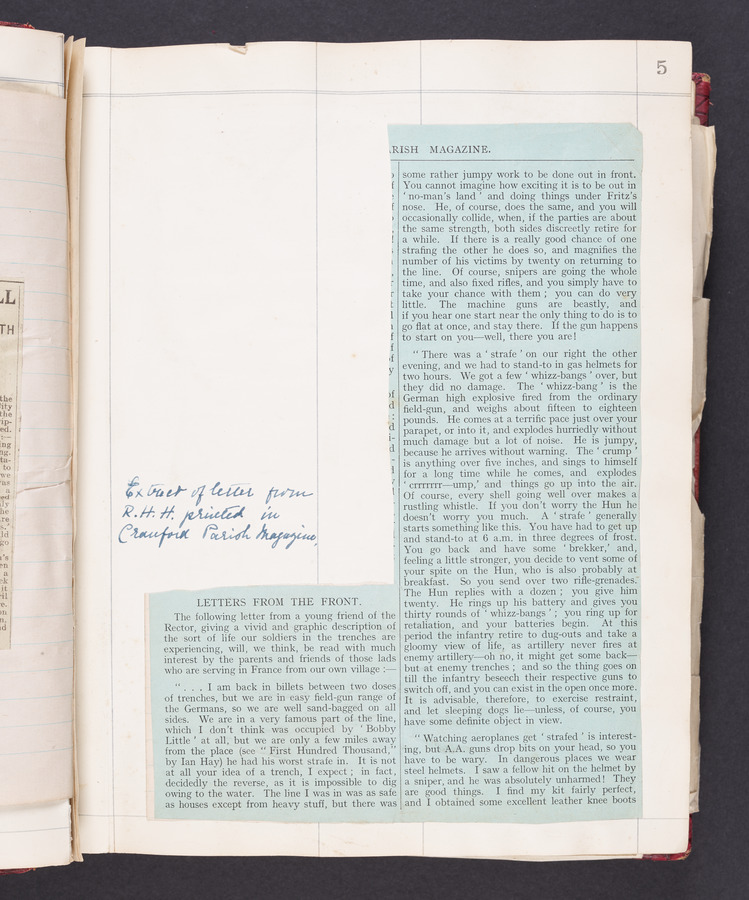 5
RISH MAGAZINE.
Extract of letter from
R.H.H. printed in
Cranford Parish Magazine.
LETTERS FROM THE FRONT.
The following letter from a young friend of the
Rector, giving a vivid and graphic description of
the sort of life our soldiers in the trenches are
experiencing, will, we think, be read with much
interest by the parents and friends of those lads
who are serving in France from our own village :—
" . . . I am back in billets between two doses
of trenches, but we are in easy field-gun range of
the Germans, so we are well sand-bagged on all
sides. We are in a very famous part of the line,
which I don't think was occupied by ' Bobby
Little ' at all, but we are only a few miles away
from the place (see " First Hundred Thousand,"
by Ian Hay) he had his worst strafe in. It is not
at all your idea of a trench, I expect ; in fact,
decidedly the reverse, as it is impossible to dig
owing to the water. The line I was in was as safe
as houses except from heavy stuff, but there was
some rather jumpy work to be done out in front.
You cannot imagine how exciting it is to be out in
' no-man's land ' and doing things under Fritz's
nose. He, of course, does the same, and you will
occasionally collide, when, if the parties are about
the same strength, both sides discreetly retire for
a while. If there is a really good chance of one
strafing the other he does so, and magnifies the
number of his victims by twenty on returning to
the line. Of course, snipers are going the whole
time, and also fixed rifles, and you simply have to
take your chance with them ; you can do very
little. The machine guns are beastly, and
if you hear one start near the only thing to do is to
go flat at once, and stay there. If the gun happens
to start on you—well, there you are!
" There was a ' strafe ' on our right the other
evening, and we had to stand-to in gas helmets for
two hours. We got a few ' whizz-bangs ' over, but
they did no damage. The ' whizz-bang ' is the
German high explosive fired from the ordinary
field-gun, and weighs about fifteen to eighteen
pounds. He comes at a terrific pace just over your
parapet, or into it, and explodes hurriedly without
much damage but a lot of noise. He is jumpy,
because he arrives without warning. The ' crump '
is anything over five inches, and sings to himself
for a long time while he comes, and explodes
' crrrrrrr—ump,' and things go up into the air.
Of course, every shell going well over makes a
rustling whistle. If you don't worry the Hun he
doesn't worry you much. A ' strafe ' generally
starts something like this. You have had to get up
and stand-to at 6 a.m. in three degrees of frost.
You go back and have some ' brekker,' and,
feeling a little stronger, you decide to vent some of
your spite on the Hun, who is also probably at
breakfast. So you send over two rifle-grenades.
The Hun replies with a dozen ; you give him
twenty. He rings up his battery and gives you
thirty rounds of ' whizz-bangs ' ; you ring up for
retaliation, and your batteries begin. At this
period the infantry retire to dug-outs and take a
gloomy view of life, as artillery never fires at
enemy artillery—oh no, it might get some back—
but at enemy trenches ; and so the thing goes on
till the infantry beseech their respective guns to
switch off, and you can exist in the open once more.
It is advisable, therefore, to exercise restraint,
and let sleeping dogs lie—unless, of course, you
have some definite object in view.
" Watching aeroplanes get ' strafed ' is interest-
ing, but A.A. guns drop bits on your head, so you
have to be wary. In dangerous places we wear
steel helmets. I saw a fellow hit on the helmet by
a sniper, and he was absolutely unharmed! They
are good things. I find my kit fairly perfect,
and I obtained some excellent leather knee boots